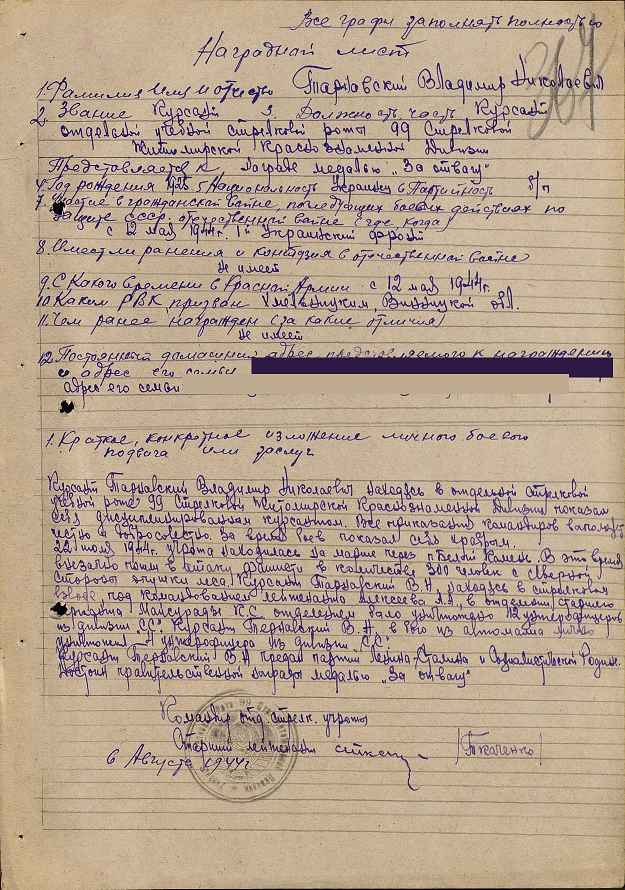 Все графы заполнять полностью
307
Наградной лист
1. Фамилия Имя и отчество Тарнавский Владимир Николаевич
2. Звание Курсант 3. Должность, часть Курсант
отдельной учебной стрелковой роты 99 Стрелковой
Житомирской Краснознаменной Дивизии
Представляется к награде медалью „За отвагу"
4. Год рождения 1925 5. Национальность Украинец 6. Партийность б/п
7. Участие в гражданской войне, последующих боевых действиях по
защите СССР. отечественной войне (где, когда)
с 12 мая 1944г. 1й Украинский фронт
8. Имеет ли ранения и контузия в отечественной войне
Не имеет
9. С Какого времени в Красной Армии с 12 мая 1944г.
10 Каким РВК призван Хмельницким, Винницкой обл.
11. Чем ранее награжден (за какие отличия)
Не имеет
12. Постоянный домашний адрес представляемого к награждению
и адрес его семьи
адрес его семьи
1. Краткое, конкретное изложение личного боевого
подвига или заслуг
Курсант Тарнавский Владимир Николаевич находясь в отдельной стрелковой
учебной роте 99 Стрелковой Житомирской Краснознаменной Дивизии показал
себя дисциплинированным курсантом. Все приказания командиров выполнял
честно и добросовестно. За время боев показал себя храбрым.
22 июля 1944г. учрота находилась на марше через п. Белый Камень. В это время
внезапно пошли в атаку фашисты в количестве 300 человек с Северной
стороны опушки леса. Курсант Тарнавский В.Н. находясь в стрелковом
взводе под командованием лейтенанта Алексеева А.А., в отделении старшего
сержанта К.С. отделением было уничтожено 12 унтерофицеров
из дивизии „СС" Курсант Тарнавский В.Н. в бою из автомата лично
уничтожил 1 унтерофицера из дивизии „СС".
Курсант Тарнавский В.Н. предан партии Ленина-Сталина и Социалистической Родине.
Достоин правительственной награды медалью „За отвагу"
Командир отд. стрелк. учроты
Старший лейтенант /Ткаченко/
6 Августа 1944г